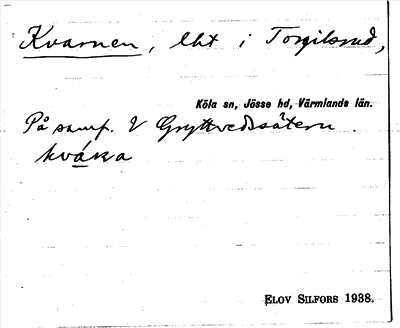 Kvarnen, lht i Torgilsrud,
Köla sn, Jösse hd, Värmlands län.
På samf. V Gryttvedssätern.
kvá̱ɳa
ELOV SILFORS 1938.